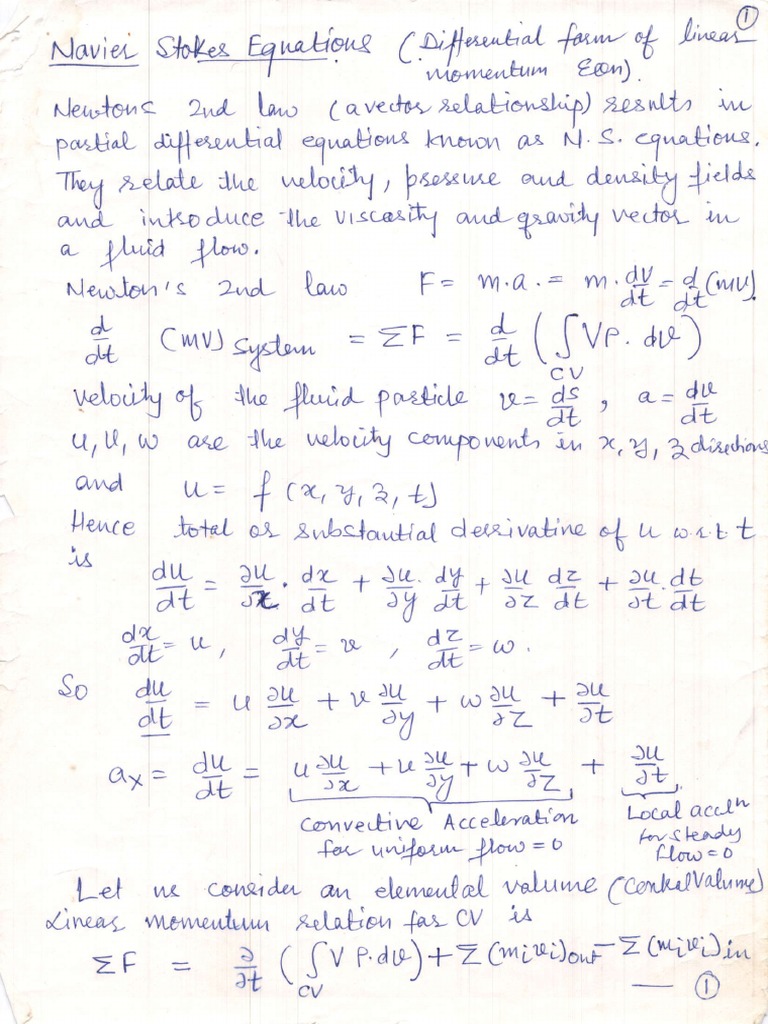 ①
Navier Stokes Equations (Differential form of linear
momentum Eqn).
Newtons 2nd law (a vector relationship) results in
partial differential equations known as N.S. equations.
They relate the velocity, pressure and density fields
and introduce the viscosity and gravity vector in
a fluid flow.
Newton's 2nd law F = m.a. = m. dv/dt = d/dt (mv).
d/dt (mv) system = ΣF = d/dt (∫cv Vρ. dv)
velocity of the fluid particle v = ds/dt , a = dv/dt
u, v, w are the velocity components in x, y, z directions
and u = f (x, y, z, t)
Hence total or substantial derrivative of u w.r.t t
is
du/dt = ∂u/∂x . dx/dt + ∂u/∂y . dy/dt + ∂u/∂z dz/dt + ∂u/∂t . dt/dt
dx/dt = u , dy/dt = v , dz/dt = w .
So du/dt = u ∂u/∂x + v ∂u/∂y + w ∂u/∂z + ∂u/∂t
ax = du/dt = u ∂u/∂x + v ∂u/∂y + w ∂u/∂z + ∂u/∂t
Convective Acceleration Local accln
for uniform flow = 0 for steady
flow = 0
Let us consider an elemental volume (Control Volume)
Linear momentum relation for CV is
ΣF = ∂/∂t (∫cv V ρ.dv) + Σ(mivi)out - Σ(mivi)in
— ①